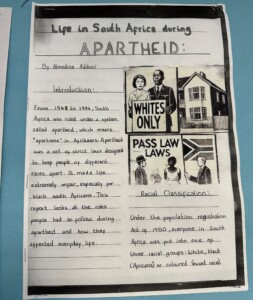 Life in South Africa during
APARTHEID:
By
Introduction:
From 1948 to 1994, South
Africa was ruled under a system
called apartheid, which means
"apartness" in Afrikaans. Apartheid
was a set of strict laws designed
to keep people of different
races apart. It made life
extremely unfair, especially for
black south Africans. This
report looks at the rules
people had to follow during
apartheid and how they
affected everyday life.
WHITES
ONLY
PASS LAW
LAWS
Racial Classification:
Under the population registration
Act of 1950, everyone in South
Africa was put into one of
three racial groups: White, black
(African) or coloured (mixed race)